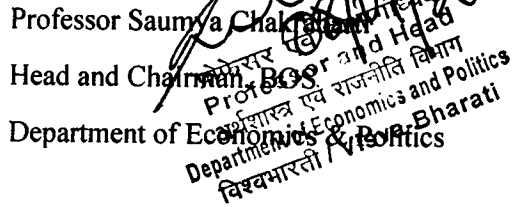 Professor Saumya Chakrabarti
Head and Chairman, BOS
Department of Economics & Politics
प्रोफेसर एवं
Professor and Head
अर्थशास्त्र एवं राजनीति विभाग
Department of Economics and Politics
विश्वभारती / Visva-Bharati